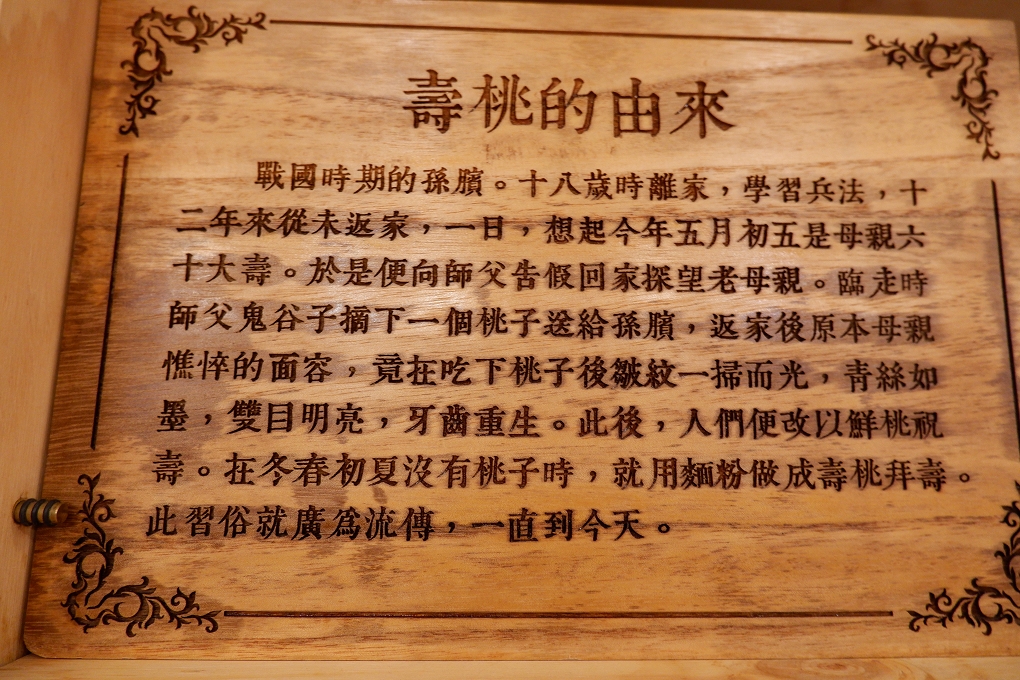 壽桃的由來
戰國時期的孫臏。十八歲時離家，學習兵法，十
二年來從未返家，一日，想起今年五月初五是母親六
十大壽。於是便向師父告假回家探望老母親。臨走時
師父鬼谷子摘下一個桃子送給孫臏，返家後原本母親
憔悴的面容，竟在吃下桃子後皺紋一掃而光，青絲如
墨，雙目明亮，牙齒重生。此後，人們便改以鮮桃祝
壽。在冬春初夏沒有桃子時，就用麵粉做成壽桃拜壽。
此習俗就廣為流傳，一直到今天。